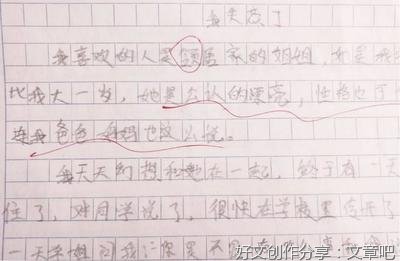 我失恋了
我喜欢的人是邻居家的姐姐，她是我
比我大一岁，她是公认的漂亮，性格也可
连我爸爸妈妈也这么说。
我天天幻想和她在一起，终于有一天
住了，对同学说了，很快在学校里传开了
一天学姐问我
好文创作分享：文章吧